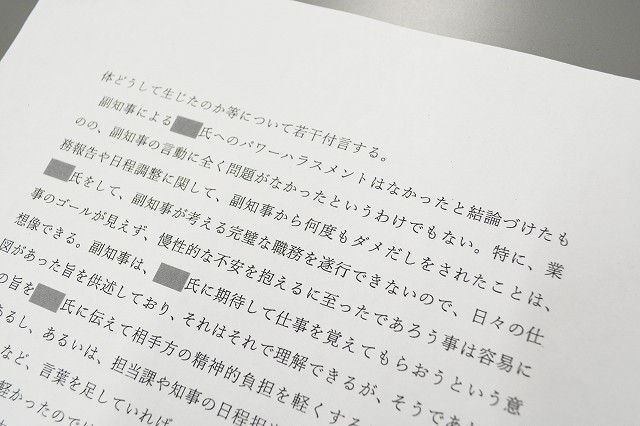 体どうして生じたのか等について若干付言する。
副知事による氏へのパワーハラスメントはなかったと結論づけたも
のの、副知事の言動に全く問題がなかったというわけでもない。特に、業
務報告や日程調整に関して、副知事から何度もダメだしをされたことは、
氏をして、副知事が考える完璧な職務を遂行できないので、日々の仕
事のゴールが見えず、慢性的な不安を抱えるに至ったであろう事は容易に
想像できる。副知事は、氏に期待して仕事を覚えてもらおうという意
図があった旨を供述しており、それはそれで理解できるが、そうであ
の旨を氏に伝えて相手方の精神的負担を軽くする
あるし、あるいは、担当課や知事の日程担
など、言葉を足していれば
軽かったのでは